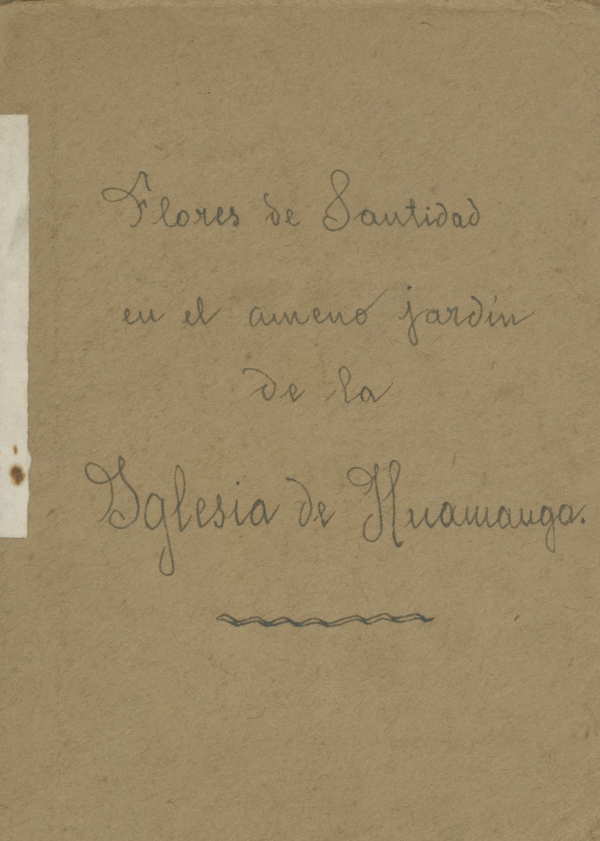 Flores de Santidad
en el ameno jardín
de la
Iglesia de Huamanga.